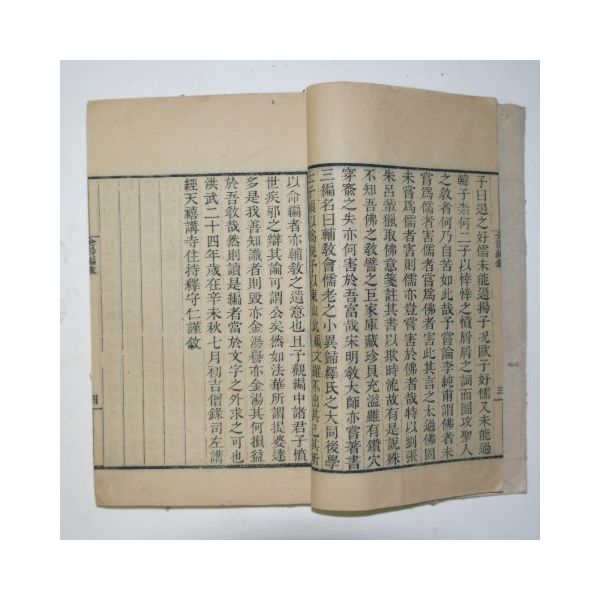 子曰退之好儒未能過揚子况歐子好儒又未能過
韓子柰何二子以悻悻之憤屑屑之詞而圖攻聖人
之教者何乃自苦如此哉予嘗論李純甫謂儒者未
嘗為佛者害儒者嘗為佛者害此其言之太過佛固
未嘗為儒者害則儒亦豈嘗害於佛者哉特以到張
朱呂輩獵取佛意箋註其書以欺時流故有是說殊
不知吾佛之教譬之巨家庫藏珍貝充溢雖有鑽穴
穿窬之失亦何害於吾富哉宋明教大師亦嘗著書
三編名曰輔教會儒老之小異歸釋氏之大同後學
以命編者亦輔教之遺意也且予觀編中諸君子憤
世疾邪之辯其論可謂公矣然如法華所謂提婆達
多是我善知識者則毀亦金湯譽亦金湯其何損益
於吾教哉然則讀是編者當於文字之外求之可也
洪武二十四年歲在辛未秋七月初吉僧錄司左講
經天禧講寺住持釋守仁謹敘
金湯編敘
四
三